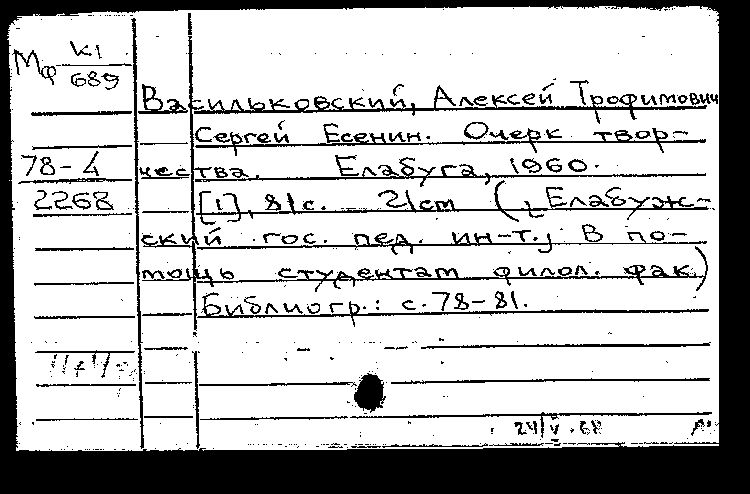 Мф К1/689
Васильковский, Алексей Трофимович
Сергей Есенин. Очерк твор-
78-4 чества. Елабуга, 1960.
2268 [1], 81с. 21cm (Елабуж-
ский гос. пед. ин-т. В по-
мощь студентам филол. фак.)
Библиогр.: с.78-81.
24/V.68